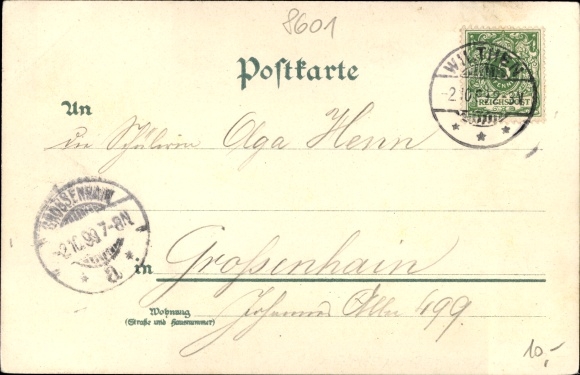 8601
Postkarte
WILTHEN
-2.10.
REICHSPOST
An
die Schülerin Olga Henn
GROSSENHAIN
-2.10.99 7-8N
a
in Großenhain
Wohnung
(Straße und Hausnummer)
Johannes Allee 499.
10,-